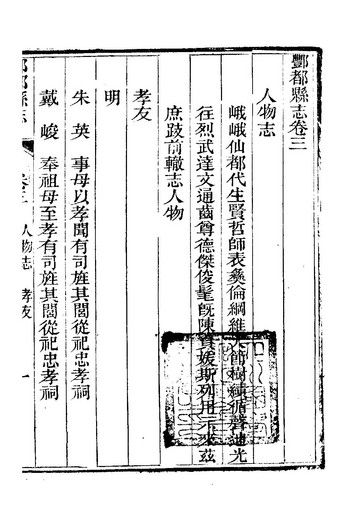 酆都縣志卷三
人物志
峨峨仙都代生賢哲師表彝倫綱維 節樹 循聲 光
往烈武達文通齒尊德傑俊髦旣陳 媛斯列用 來茲
庶跂前轍志人物
孝友
明
朱英 事母以孝聞有司旌其閭從祀忠孝祠
戴峻 奉祖母至孝有司旌其閭從祀忠孝祠
人物志 孝友 一